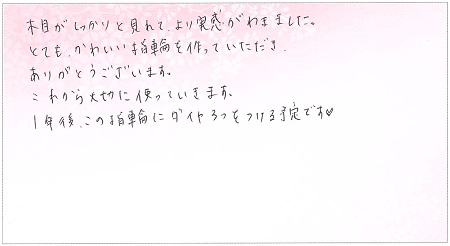 木目がしっかりと見れて、より実感がわきました。
とても、かわいい指輪を作っていただき、
ありがとうございます。
これから大切に使っていきます。
1年後、この指輪にダイヤ3つをつける予定です♥